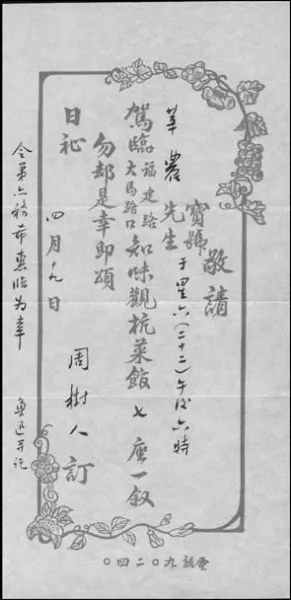 敬請
寶號
莘農先生 于星六（二十二）午後六時
駕臨福建路
大馬路口知味觀杭菜館七座一叙
勿却是幸即頌
日祉
四月十九日
周樹人訂
令弟亦務希惠臨為幸
魯迅并託
電話九〇二四〇